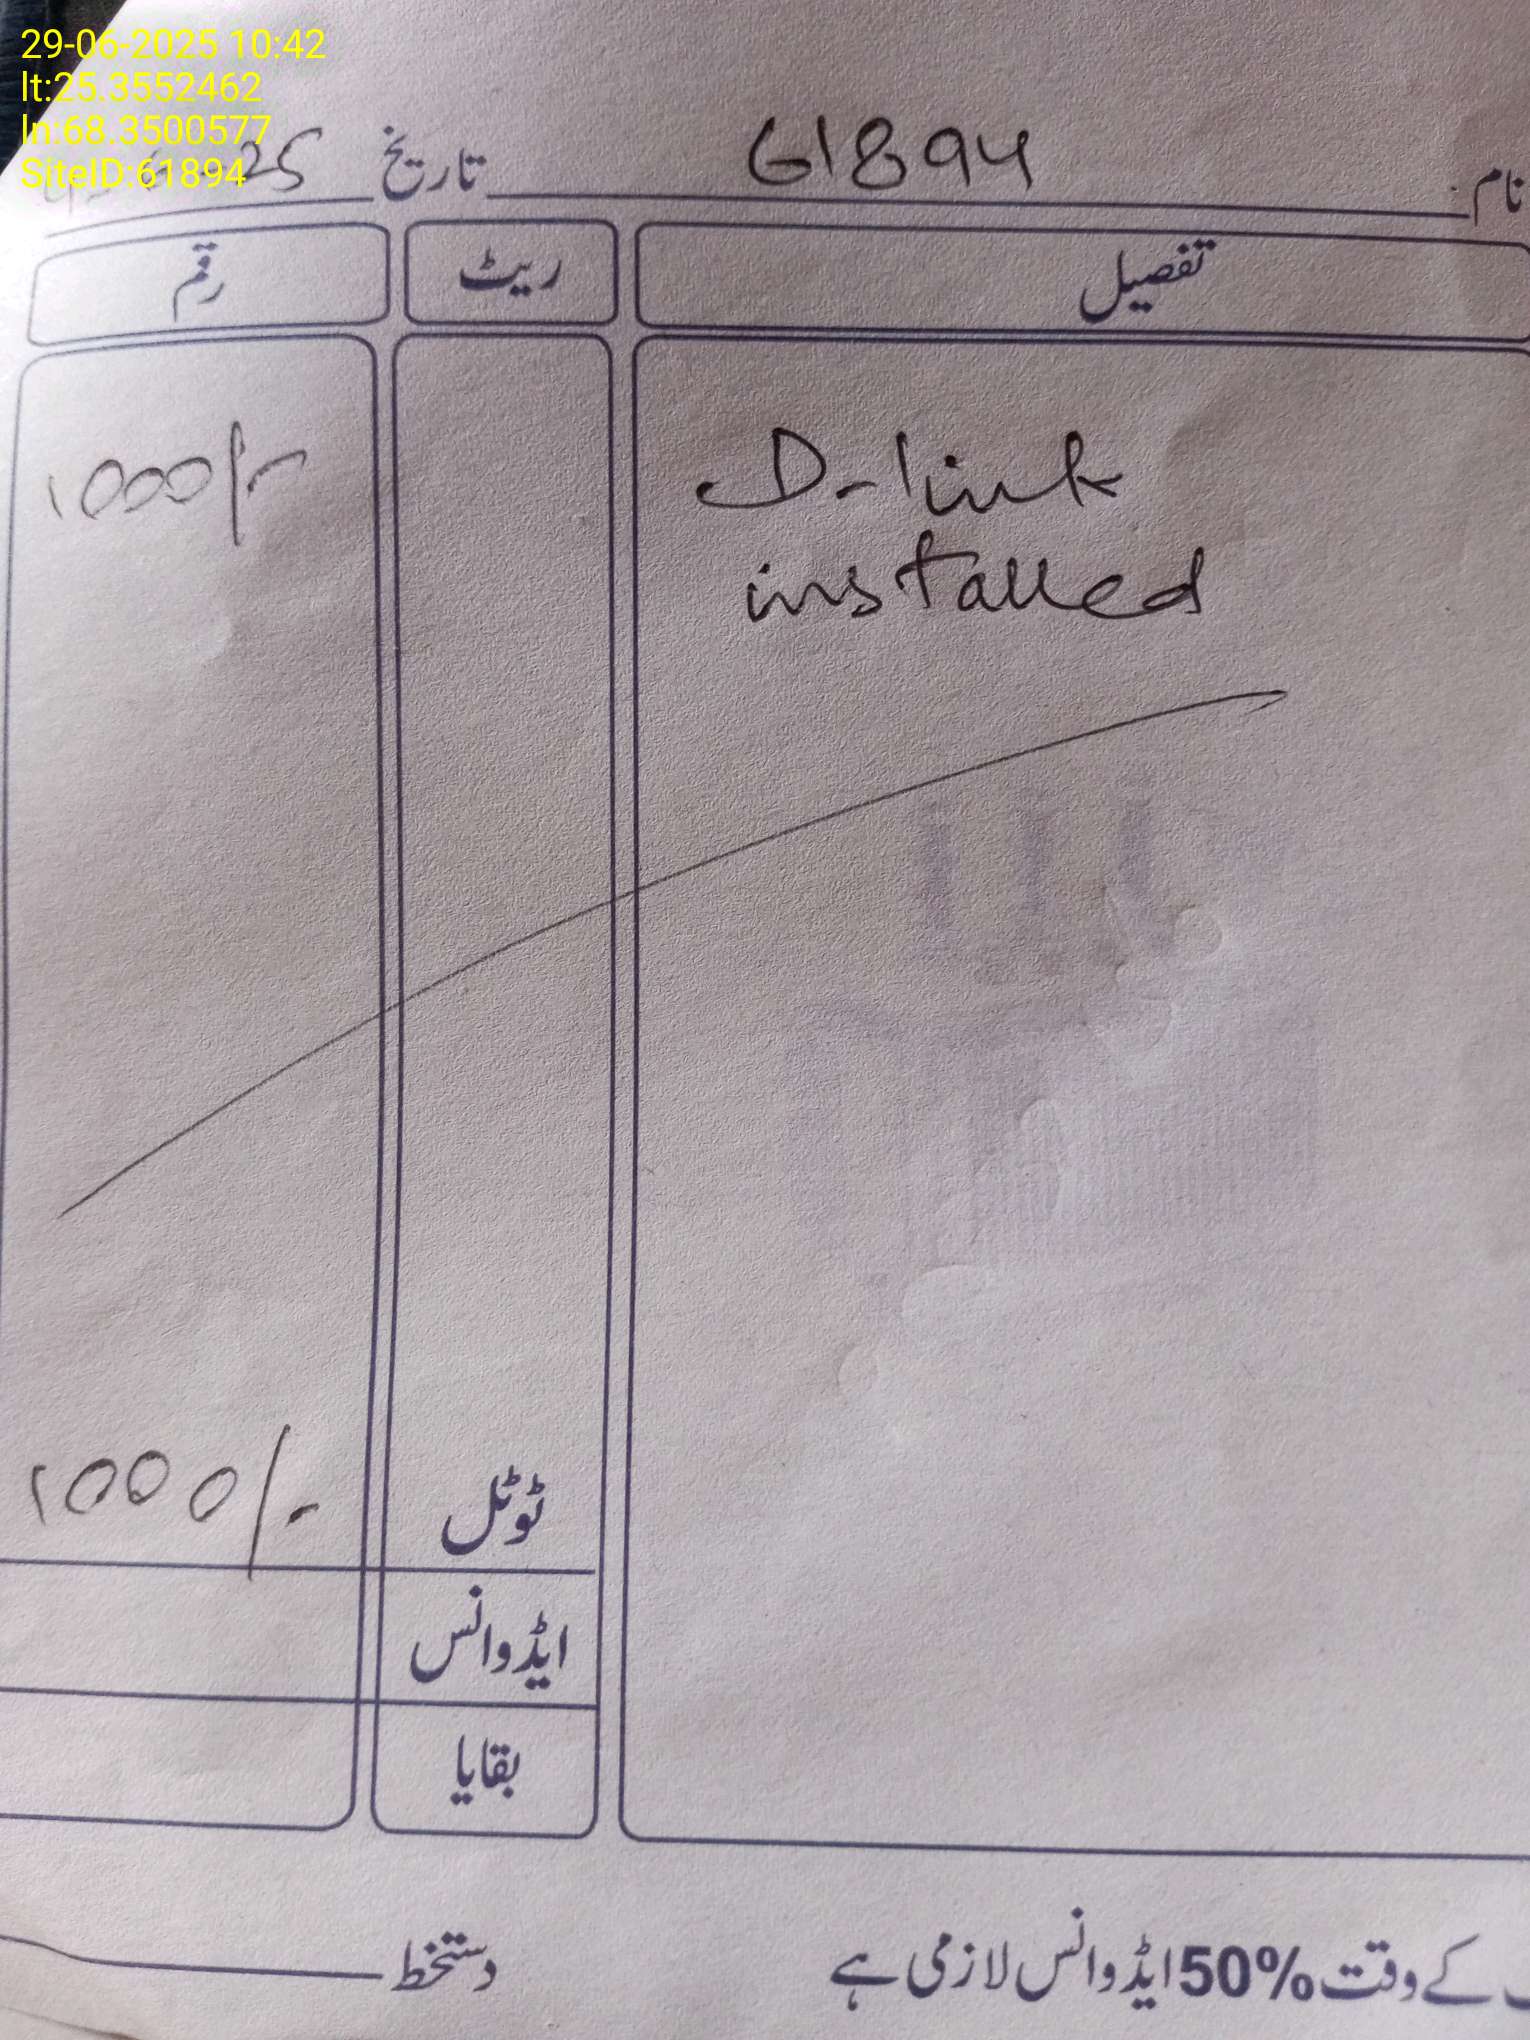 29-06-2025 10:42
lt:25.3552462
ln:68.3500577
SiteID:61894
نام 61894 تاریخ 25
تفصیل ریٹ رقم
D-link 1000/-
installed
ٹوٹل 1000/-
ایڈوانس
بقایا
کے وقت 50% ایڈوانس لازمی ہے دستخط